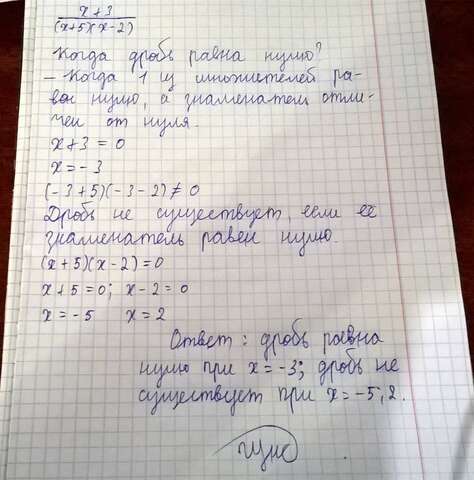 x+3
(x+5)(x-2)
Когда дробь равна нулю?
- Когда 1 из множителей ра-
вен нулю, а знаменатель отли-
чен от нуля.
x+3 = 0
x = -3
(-3+5)(-3-2) ≠ 0
Дробь не существует, если её
знаменатель равен нулю.
(x+5)(x-2)=0
x+5=0; x-2=0
x=-5 x=2
Ответ: дробь равна
нулю при x=-3; дробь не
существует при x=-5; 2.